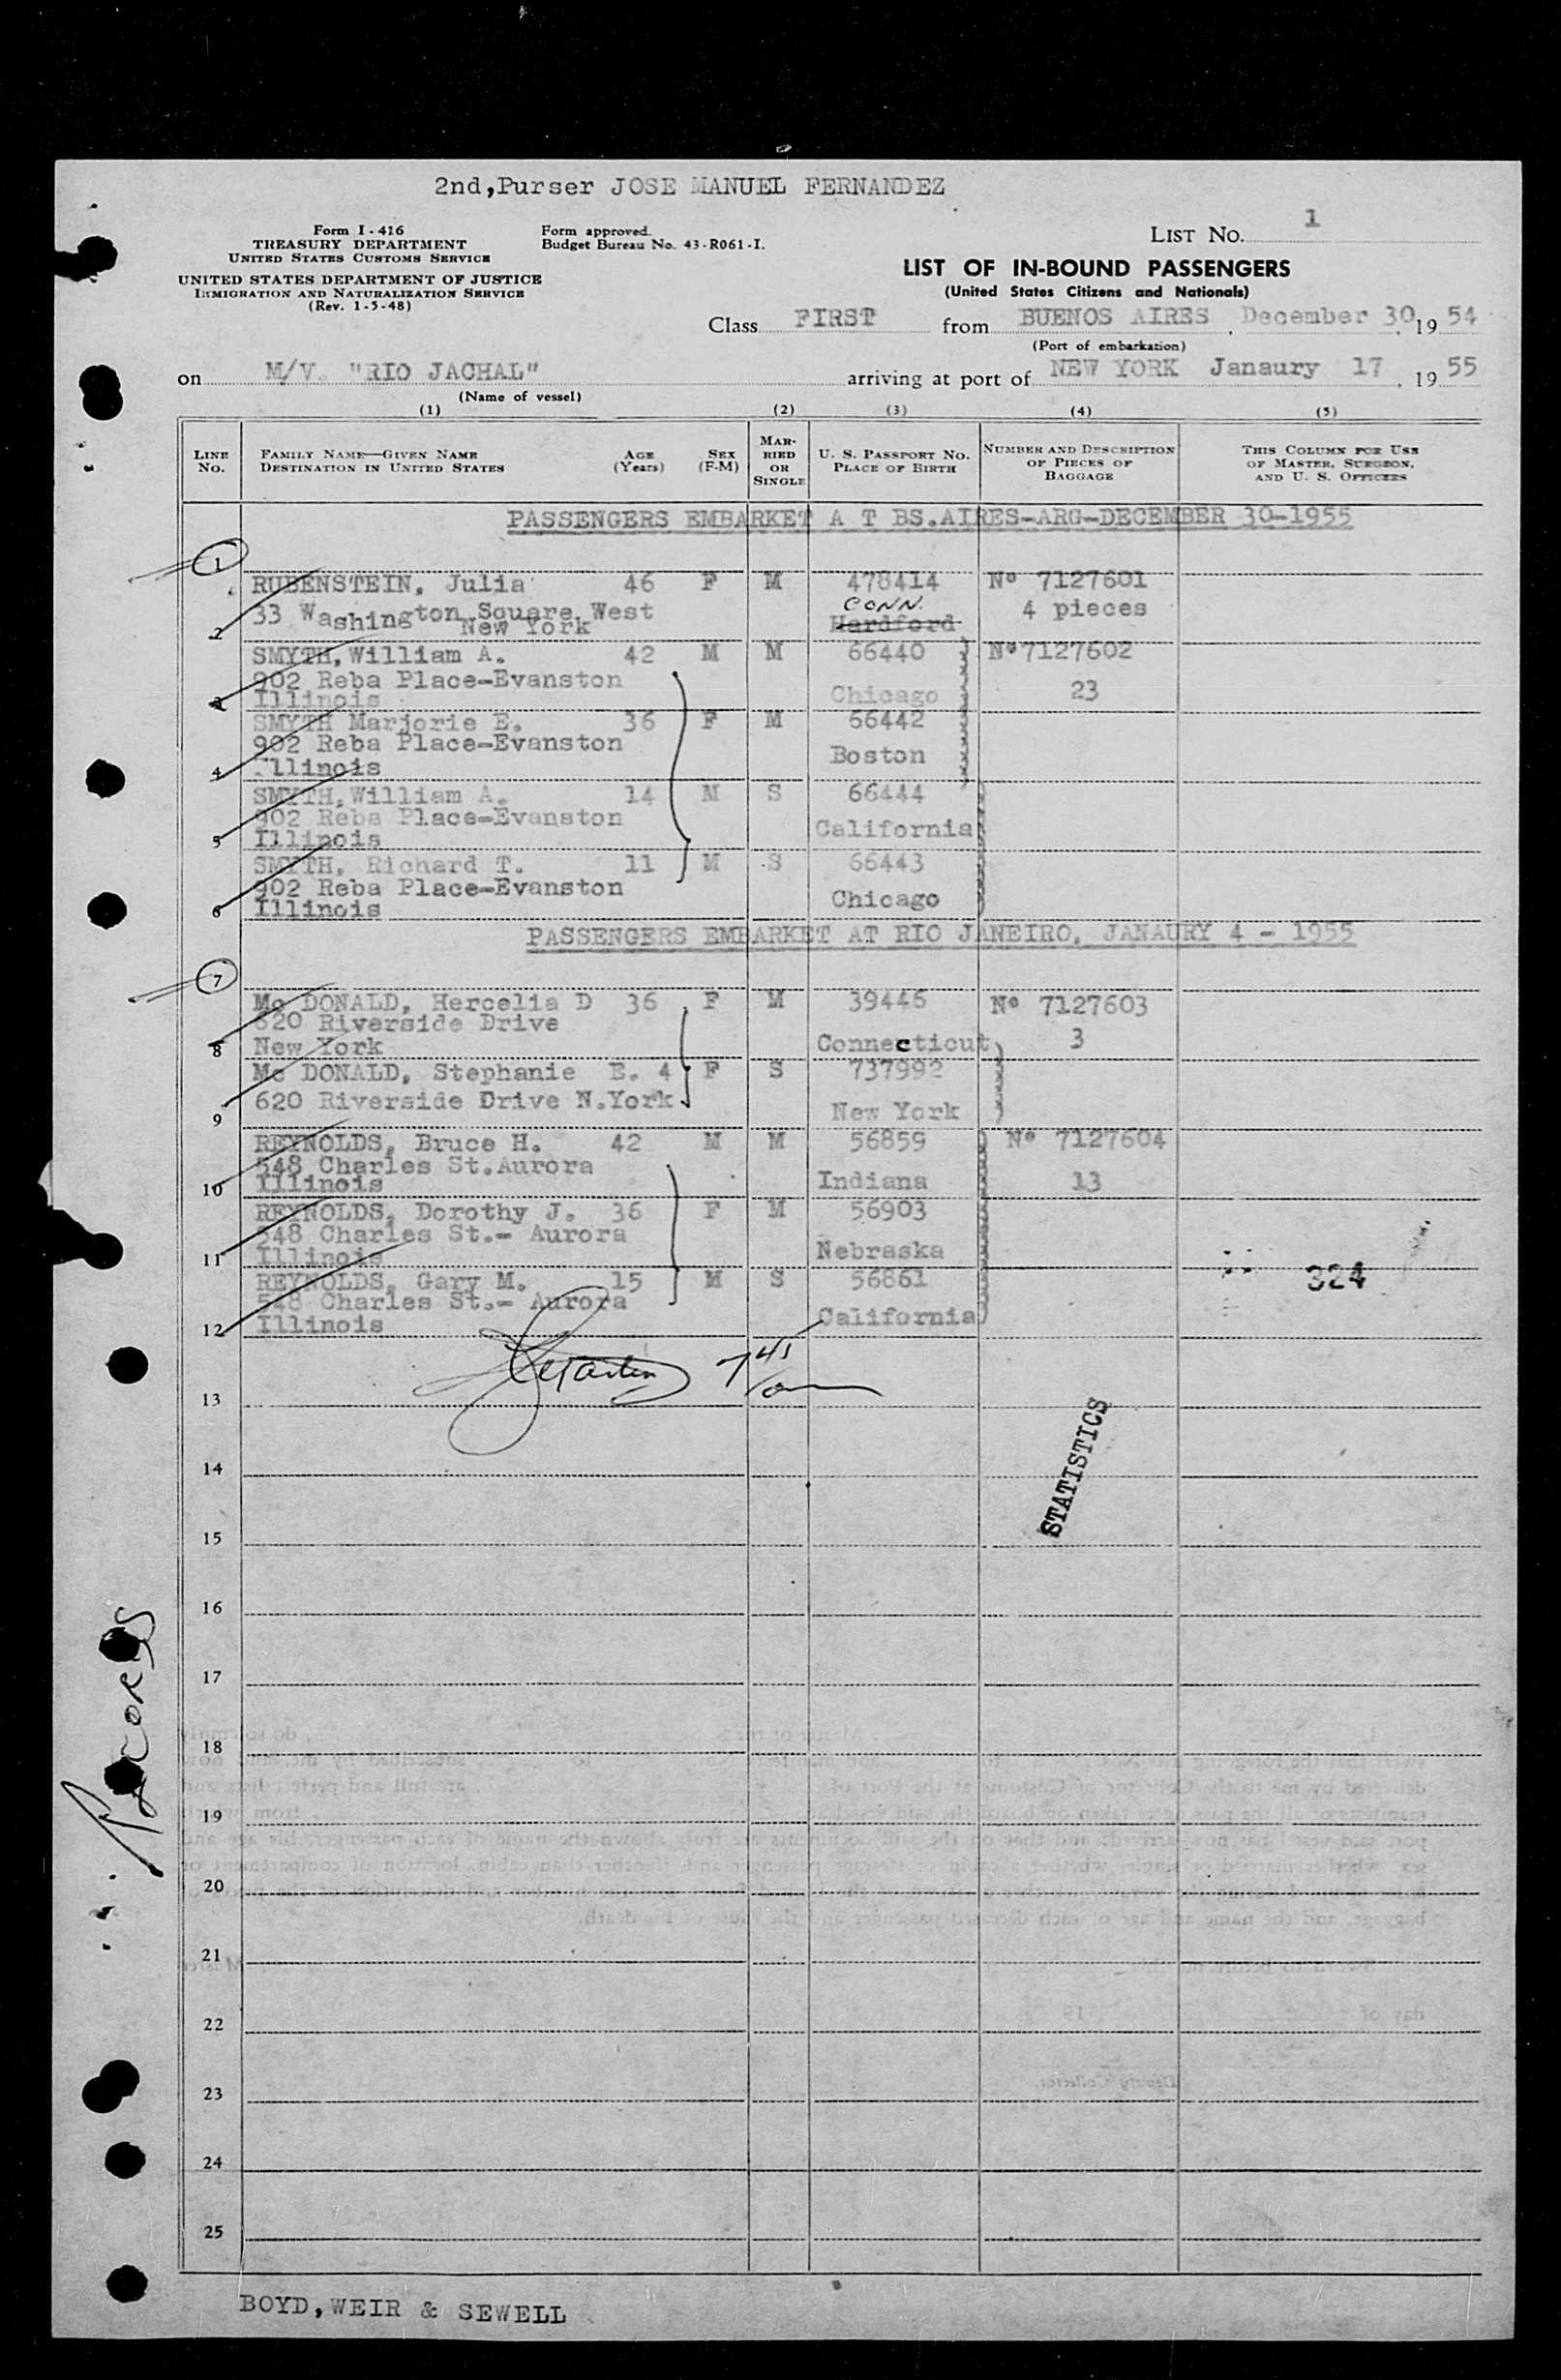 2nd,Purser JOSE MANUEL FERNANDEZ
Form I-416
TREASURY DEPARTMENT
UNITED STATES CUSTOMS SERVICE
UNITED STATES DEPARTMENT OF JUSTICE
IMMIGRATION AND NATURALIZATION SERVICE
(Rev. 1-5-48)
Form approved.
Budget Bureau No. 43-R061-I.
LIST NO. 1
LIST OF IN-BOUND PASSENGERS
(United States Citizens and Nationals)
Class FIRST from BUENOS AIRES, December 30, 19 54
(Port of embarkation)
on M/V. "RIO JACHAL" arriving at port of NEW YORK Janaury 17, 19 55
(Name of vessel)
(1) (2) (3) (4) (5)
LINE NO. FAMILY NAME—GIVEN NAME DESTINATION IN UNITED STATES AGE (Years) SEX (F-M) MARRIED OR SINGLE U. S. PASSPORT NO. PLACE OF BIRTH NUMBER AND DESCRIPTION OF PIECES OF BAGGAGE THIS COLUMN FOR USE OF MASTER, SURGEON, AND U. S. OFFICERS
PASSENGERS EMBARKET A T BS.AIRES-ARG-DECEMBER 30-1955
1
RUBENSTEIN, Julia 46 F M 478414 Nº 7127601
33 Washington Square West CONN. 4 pieces
2 New York Hardford
SMYTH, William A. 42 M M 66440 Nº 7127602
902 Reba Place-Evanston
3 Illinois Chicago 23
SMYTH Marjorie E. 36 F M 66442
902 Reba Place-Evanston Boston
4 Illinois
SMYTH, William A. 14 M S 66444
902 Reba Place-Evanston California
5 Illinois
SMYTH, Richard T. 11 M S 66443
902 Reba Place-Evanston Chicago
6 Illinois
PASSENGERS EMBARKET AT RIO JANEIRO, JANAURY 4 - 1955
7
Mc DONALD, Hercelia D 36 F M 39446 Nº 7127603
620 Riverside Drive
8 New York Connecticut 3
Mc DONALD, Stephanie E. 4 F S 737992
620 Riverside Drive N.York New York
9
REYNOLDS, Bruce H. 42 M M 56859 Nº 7127604
548 Charles St.Aurora
10 Illinois Indiana 13
REYNOLDS, Dorothy J. 36 F M 56903
548 Charles St.- Aurora Nebraska
11 Illinois
REYNOLDS, Gary M. 15 M S 56861 324
548 Charles St.- Aurora California
12 Illinois
13
14
STATISTICS
15
16
17
18
19
20
21
22
23
24
25
RECORDS
BOYD, WEIR & SEWELL